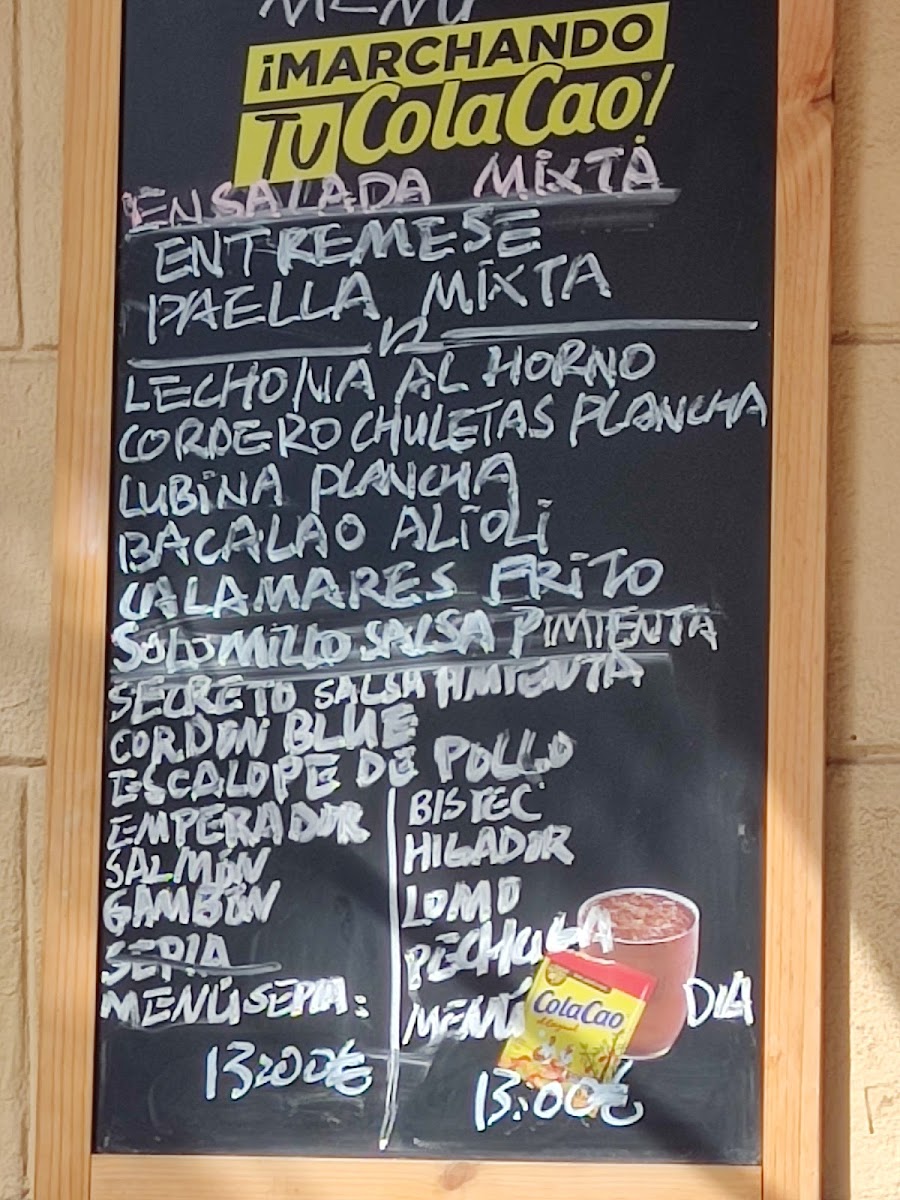 MENÚ
¡MARCHANDO
TU ColaCao!
ENSALADA MIXTA
ENTREMESE
PAELLA MIXTA
LECHONA AL HORNO
CORDERO CHULETAS PLANCHA
LUBINA PLANCHA
BACALAO ALIOLI
CALAMARES FRITO
SOLOMILLO SALSA PIMIENTA
SECRETO SALSA PIMIENTA
CORDON BLUE
ESCALOPE DE POLLO
EMPERADOR
SALMÓN
GAMBÓN
SEPIA
MENÚ SEPIA:
13'00€
BISTEC
HIGADOR
LOMO
PECHUGA
MENÚ DIA
ColaCao
13:00€